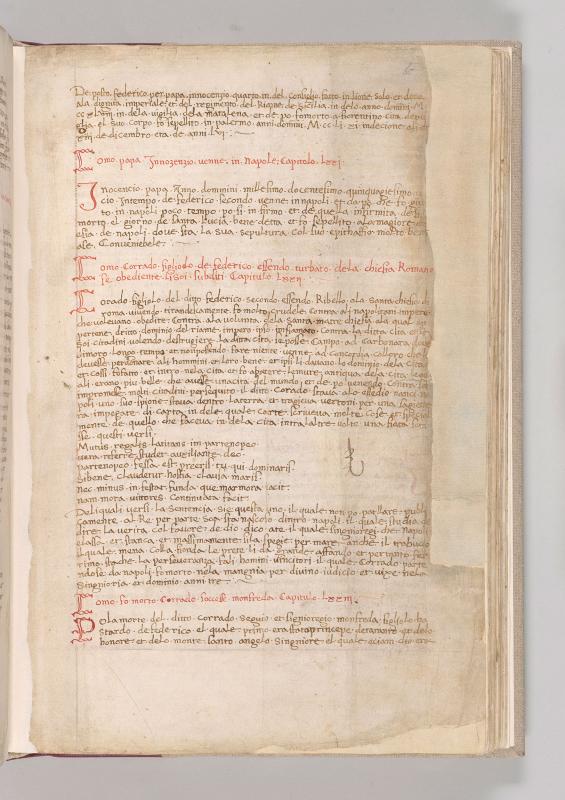 De posto. federico. per. papa. innocenzio. quarto. in. del. consiglio. fatto. in. lione. solo. et
ala. dignita. imperiale. et. del. regimento. del. Riame. de. sicilia. in. delo. anno. domini. M
in. dela. vigilia. dela. matalena. et. de. po. fo. morto. a. fiorentino. cita. de. pu
glia. el. suo. corpo. fo. sepellito. in. palermo. anni. domini. M. cc. l. indecione.
de. decembro. eta. de. anni. lvi.
Como. papa. Innozenzio. venne. in. Napole. Capitolo. lxxi.
Inocencio. papa. Anno. dommini. millesimo. docentesimo. quinquagiesimo.
cio. Intempo. de. federico. secondo. venne. in. napoli. et. da. po. che. fo
to. in. napoli. poco. tempo. po. si. infirmo. et. de. quella. infirmita. de
morto. el. giorno. de. santa. lucia. benedetta. et. fo. sepellito. ala. magiore.
esia. de. napoli. dove. sta. la. sua. sepultura. col. suo. epithafio. molto. ben
ale. Conveniebele.
Como. Corrado. figliolo. de. federico. essendo. turbato. dela. chiesia. Romano
fe. obediente. li. soi. subditi. Capitulo. Lxxii.
Corado. figliolo. del. ditto. federico. secondo. essendo. Ribello. ala. santa. chiesia. di
roma. vivendo. tirandescamente. fo. molto. crudele. contra. ali. napolitani. impero
che. volevano. obedire. Contra. ala. volunta. dela. Santa. matre. chiesia. ala. qual. ap
pertene. ditto. dominio. del. riame. impero. ipso. Contra. la. ditta. cita. et. le
soi. citadini. volendo. destrugiere. la. ditta. cita. ie. posse. Campo. ad. Carbonara. dove
dimoro. longo. tempo. et. non. possendo. fare. niente. venne. ad. concordia. col. loro. che. no
devesse. perdonare. ali. hommini. et. loro. bene. et. ipsi. li. davano. lo. dominio. dela. Cita
et. cossi. fo. fatto. et. intro. nela. cita. et. fo. abattere. le. mure. antiqua. dela. cita. le. qu
ali. erano. piu. belle. che. avesse. una. cita. del. mundo. et. de. po. venendo. Contra. la
impromese. molti. citadini. persequito. il. ditto. Corrado. stava. alo. assedio. nanci. na
poli. uno. suo. spione. stava. dentro. la. terra. et. tragieva. vertoni. per. una.
ra. impegare. di. carta. in. dele. quale. carte. scriveva. molte. cose. et. special
mente. de. quello. che. faceva. in. dela. cita. intra. l altre. volte. una. fiata. scri
sse. questi. versi.
Mutius. regalis. latitans. in. partenopeo
vera. referre. studet. auxiliante. deo.
partenopeo. fessa. est. tu. qui. dominaris
Si. bene. claudetur. hostia. clavia. maris.
nec. minus. infestat. funda. que. marmora. iacit.
nam. mora. vittores. Continuata. facit.
Deli. quali. versi. la. sentencia. sie. questa. uno. il. quale. non. po. parllare. publi
camente. al. Re. per. parte. soa. sta. nascoso. dintro. napoli. il. quale. studia. de
dire. La. verita. col. favore. de. dio. dico. a. te. il. quale. signioregi. che. Napoli
e. lassa. et. stanca. et. massimamente. si. la. spegie. per. mare. anche. il. trabuco
il. quale. mena. colla. fionda. le. prete. li. da. grande. affando. et. per. tanto.
timo. sta. che. la. perseveranza. fa. li. homini. vincitori. il. quale. Corrado. parte
ndose. da. napoli. fo. morto. nela. mangnia. per. divino. iudicio. et. vixe. nela
Signioria. et. dominio. anni. tre.
Como. fo. morto. Corrado. soccese. monfreda. Capitulo. Lxxiii.
Pola. morte. del. ditto. corrado. seguio. et. signioregio. monfreda. figliolo. ba
stardo. de. federico. el. quale. primo. era. stato. princepe. de. taranto. et. delo
honore. et. delo. monte. santo. angelo. Singniore. el. quale. eciam. dio. era